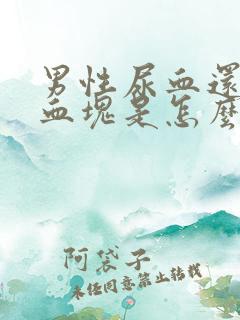 男性尿血還
血塊是怎麼
阿袋子
未經同意禁止轉載